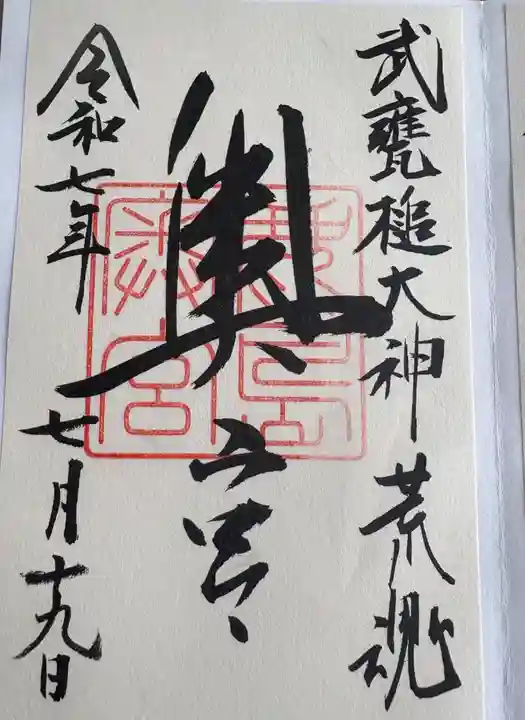 武甕槌大神荒魂
奥宮
令和七年七月十九日